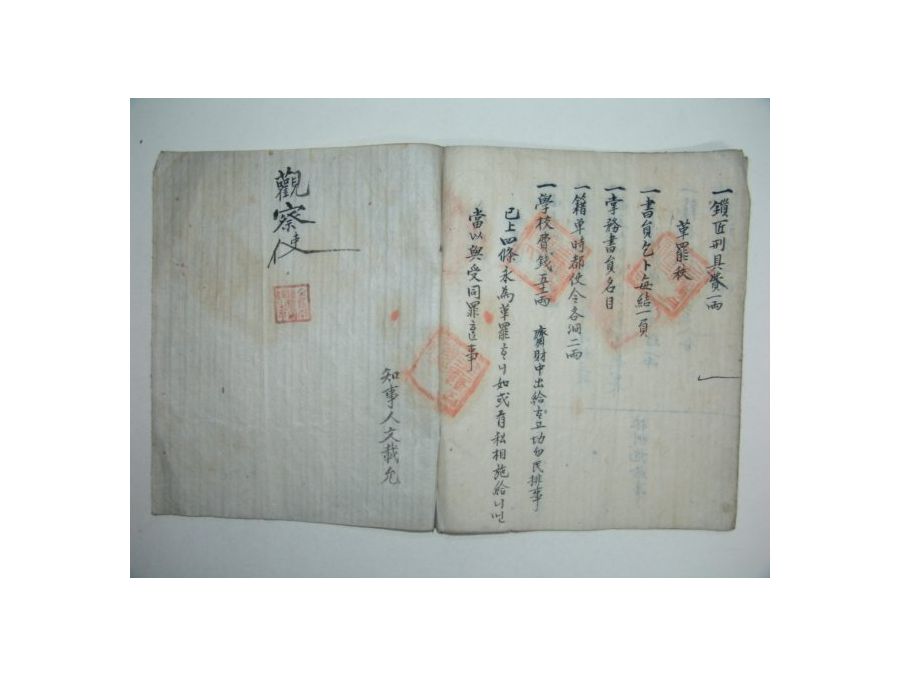 一鎖匠刑具費一兩
革罷秩
一書員乞卜每結一負
一掌務書員名目
一籍單時都使令各洞二兩
一學校費錢五十兩 齋財中出給 立 切勿民排事
已上四條永為革罷 니如或有私相施給 니
當以與受同罪 事
知事人文載允
觀察使